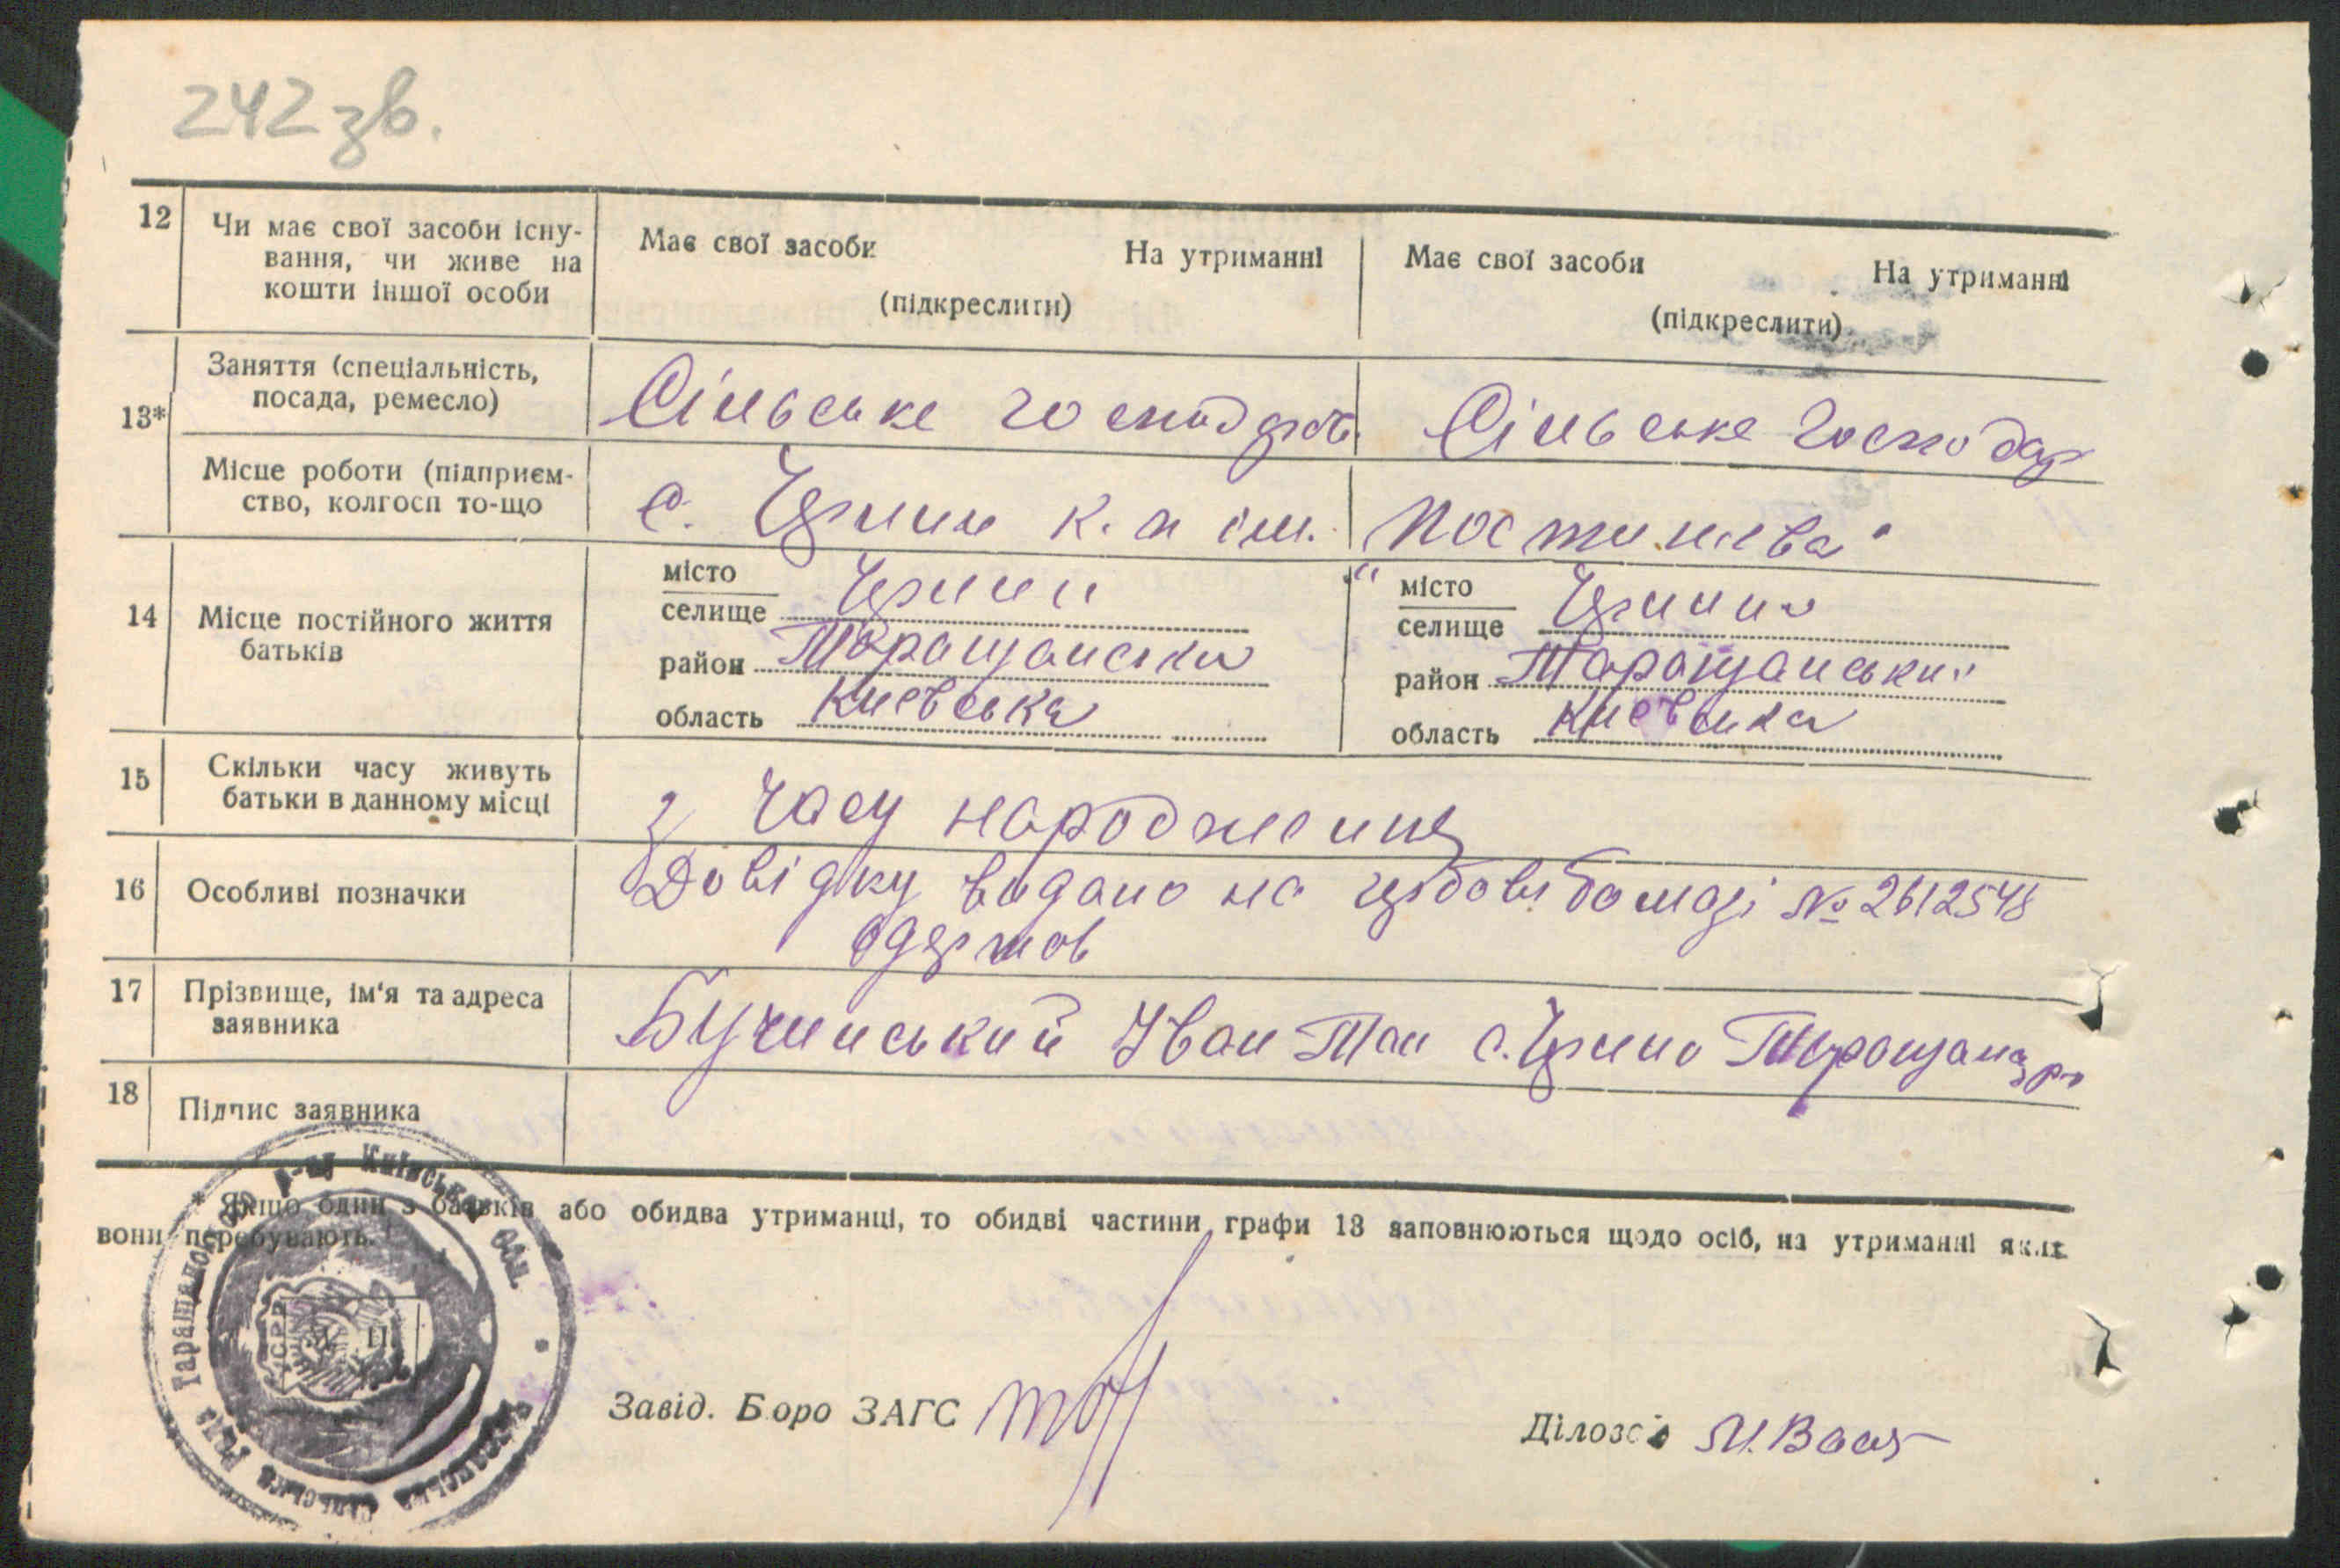 242 зв.
12 Чи має свої засоби існу-
вання, чи живе на
кошти іншої особи
Має свої засоби На утриманні
(підкреслити)
Має свої засоби На утриманні
(підкреслити)
13* Заняття (спеціальність,
посада, ремесло)
Сільське господарств. Сільське господар
Місце роботи (підприєм-
ство, колгосп то-що
с. к. п ім. Постишева"
14 Місце постійного життя
батьків
місто
селище
район Таращански
область Киевська
місто
селище
район Таращанський
область Киевська
15 Скільки часу живуть
батьки в данному місці
з часу народження
16 Особливі позначки
Довідку видано на бомазі № 2612548
одержав
17 Прізвище, ім'я та адреса
заявника
Бучинський Іван с. р-
18 Підпис заявника
* Якщо один з батьків або обидва утриманці, то обидві частини графи 13 заповнюються щодо осіб, на утриманні яких
вони перебувають.
Таращанського р-ну Київської обл.
Сільська Рада
УСРР
Завід. Бюро ЗАГС
Діловод